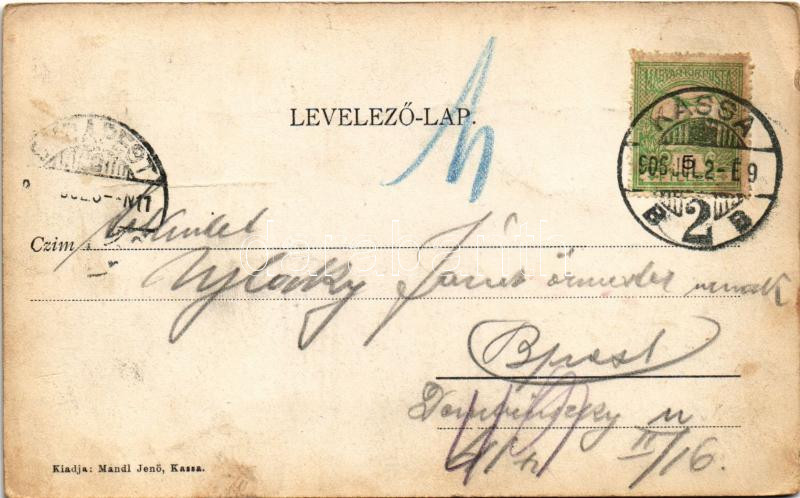 LEVELEZŐ-LAP.
MAGYAR KIR. POSTA
5
KASSA
906 JUL. 2 - E 9
B 2 B
BUDAPEST
N11
Czim
Ujlaky János őrmester urnak
Bpest
u
III/16.
Kiadja: Mandl Jenő, Kassa.
darabanth